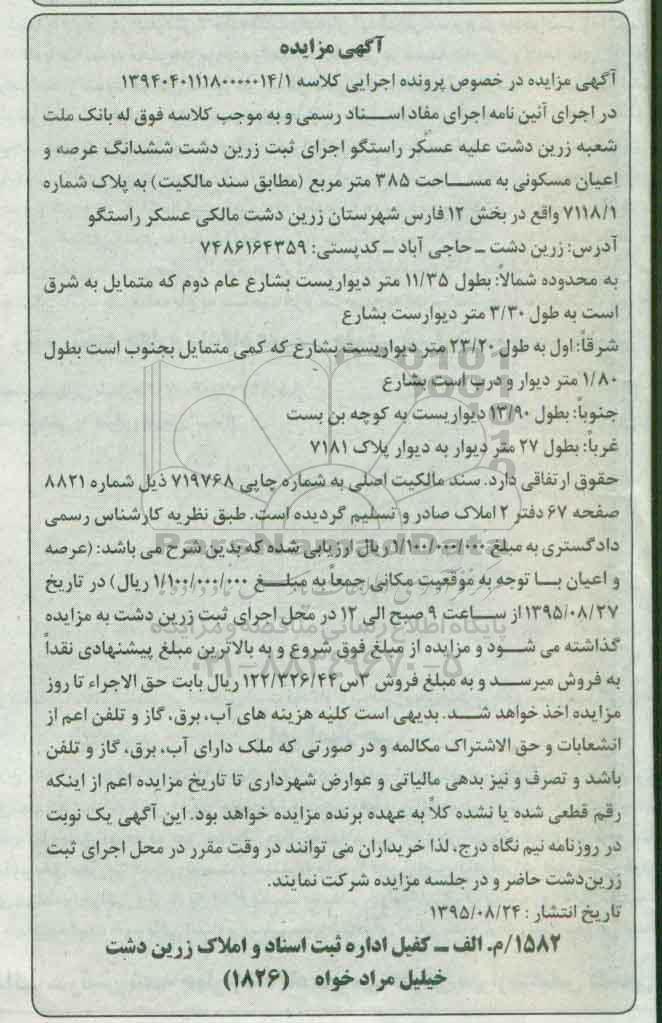 آگهی مزایده
آگهی مزایده در خصوص پرونده اجرایی کلاسه ۱۳۹۴۰۴۰۱۱۱۸۰۰۰۰۰۱۴/۱
در اجرای آئین نامه اجرای مفاد اسناد رسمی و به موجب کلاسه فوق له بانک ملت
شعبه زرین دشت علیه عسکر راستگو اجرای ثبت زرین دشت ششدانگ عرصه و
اعیان مسکونی به مساحت ۳۸۵ متر مربع (مطابق سند مالکیت) به پلاک شماره
۷۱۱۸/۱ واقع در بخش ۱۲ فارس شهرستان زرین دشت مالکی عسکر راستگو
آدرس: زرین دشت ـ حاجی آباد ـ کدپستی: ۷۴۸۶۱۶۴۳۵۹
به محدوده شمالاً: بطول ۱۱/۳۵ متر دیواریست بشارع عام دوم که متمایل به شرق
است به طول ۳/۳۰ متر دیوارست بشارع
شرقاً: اول به طول ۲۳/۲۰ متر دیواریست بشارع که کمی متمایل بجنوب است بطول
۱/۸۰ متر دیوار و درب است بشارع
جنوباً: بطول ۱۳/۹۰ دیواریست به کوچه بن بست
غرباً: بطول ۲۷ متر دیوار به دیوار پلاک ۷۱۸۱
حقوق ارتفاقی دارد. سند مالکیت اصلی به شماره چاپی ۷۱۹۷۶۸ ذیل شماره ۸۸۲۱
صفحه ۶۷ دفتر ۲ املاک صادر و تسلیم گردیده است. طبق نظریه کارشناس رسمی
دادگستری به مبلغ ۱/۱۰۰/۰۰۰/۰۰۰ ریال ارزیابی شده که بدین شرح می باشد: (عرصه
و اعیان با توجه به موقعیت مکانی جمعاً به مبلغ ۱/۱۰۰/۰۰۰/۰۰۰ ریال) در تاریخ
۱۳۹۵/۰۸/۲۷ از ساعت ۹ صبح الی ۱۲ در محل اجرای ثبت زرین دشت به مزایده
گذاشته می شود و مزایده از مبلغ فوق شروع و به بالاترین مبلغ پیشنهادی نقداً
به فروش میرسد و به مبلغ فروش ۳س۱۲۲/۳۲۶/۴۴ ریال بابت حق الاجراء تا روز
مزایده اخذ خواهد شد. بدیهی است کلیه هزینه های آب، برق، گاز و تلفن اعم از
انشعابات و حق الاشتراک مکالمه و در صورتی که ملک دارای آب، برق، گاز و تلفن
باشد و تصرف و نیز بدهی مالیاتی و عوارض شهرداری تا تاریخ مزایده اعم از اینکه
رقم قطعی شده یا نشده کلاً به عهده برنده مزایده خواهد بود. این آگهی یک نوبت
در روزنامه نیم نگاه درج، لذا خریداران می توانند در وقت مقرر در محل اجرای ثبت
زرین‌دشت حاضر و در جلسه مزایده شرکت نمایند.
تاریخ انتشار: ۱۳۹۵/۰۸/۲۴
۱۵۸۲/م. الف ـ کفیل اداره ثبت اسناد و املاک زرین دشت
خیلیل مراد خواه (۱۸۲۶)
ParsNamadData
پایگاه اطلاع رسانی مناقصه و مزایده
۰۲۱-۸۸۳۴۹۶۷۰-۵